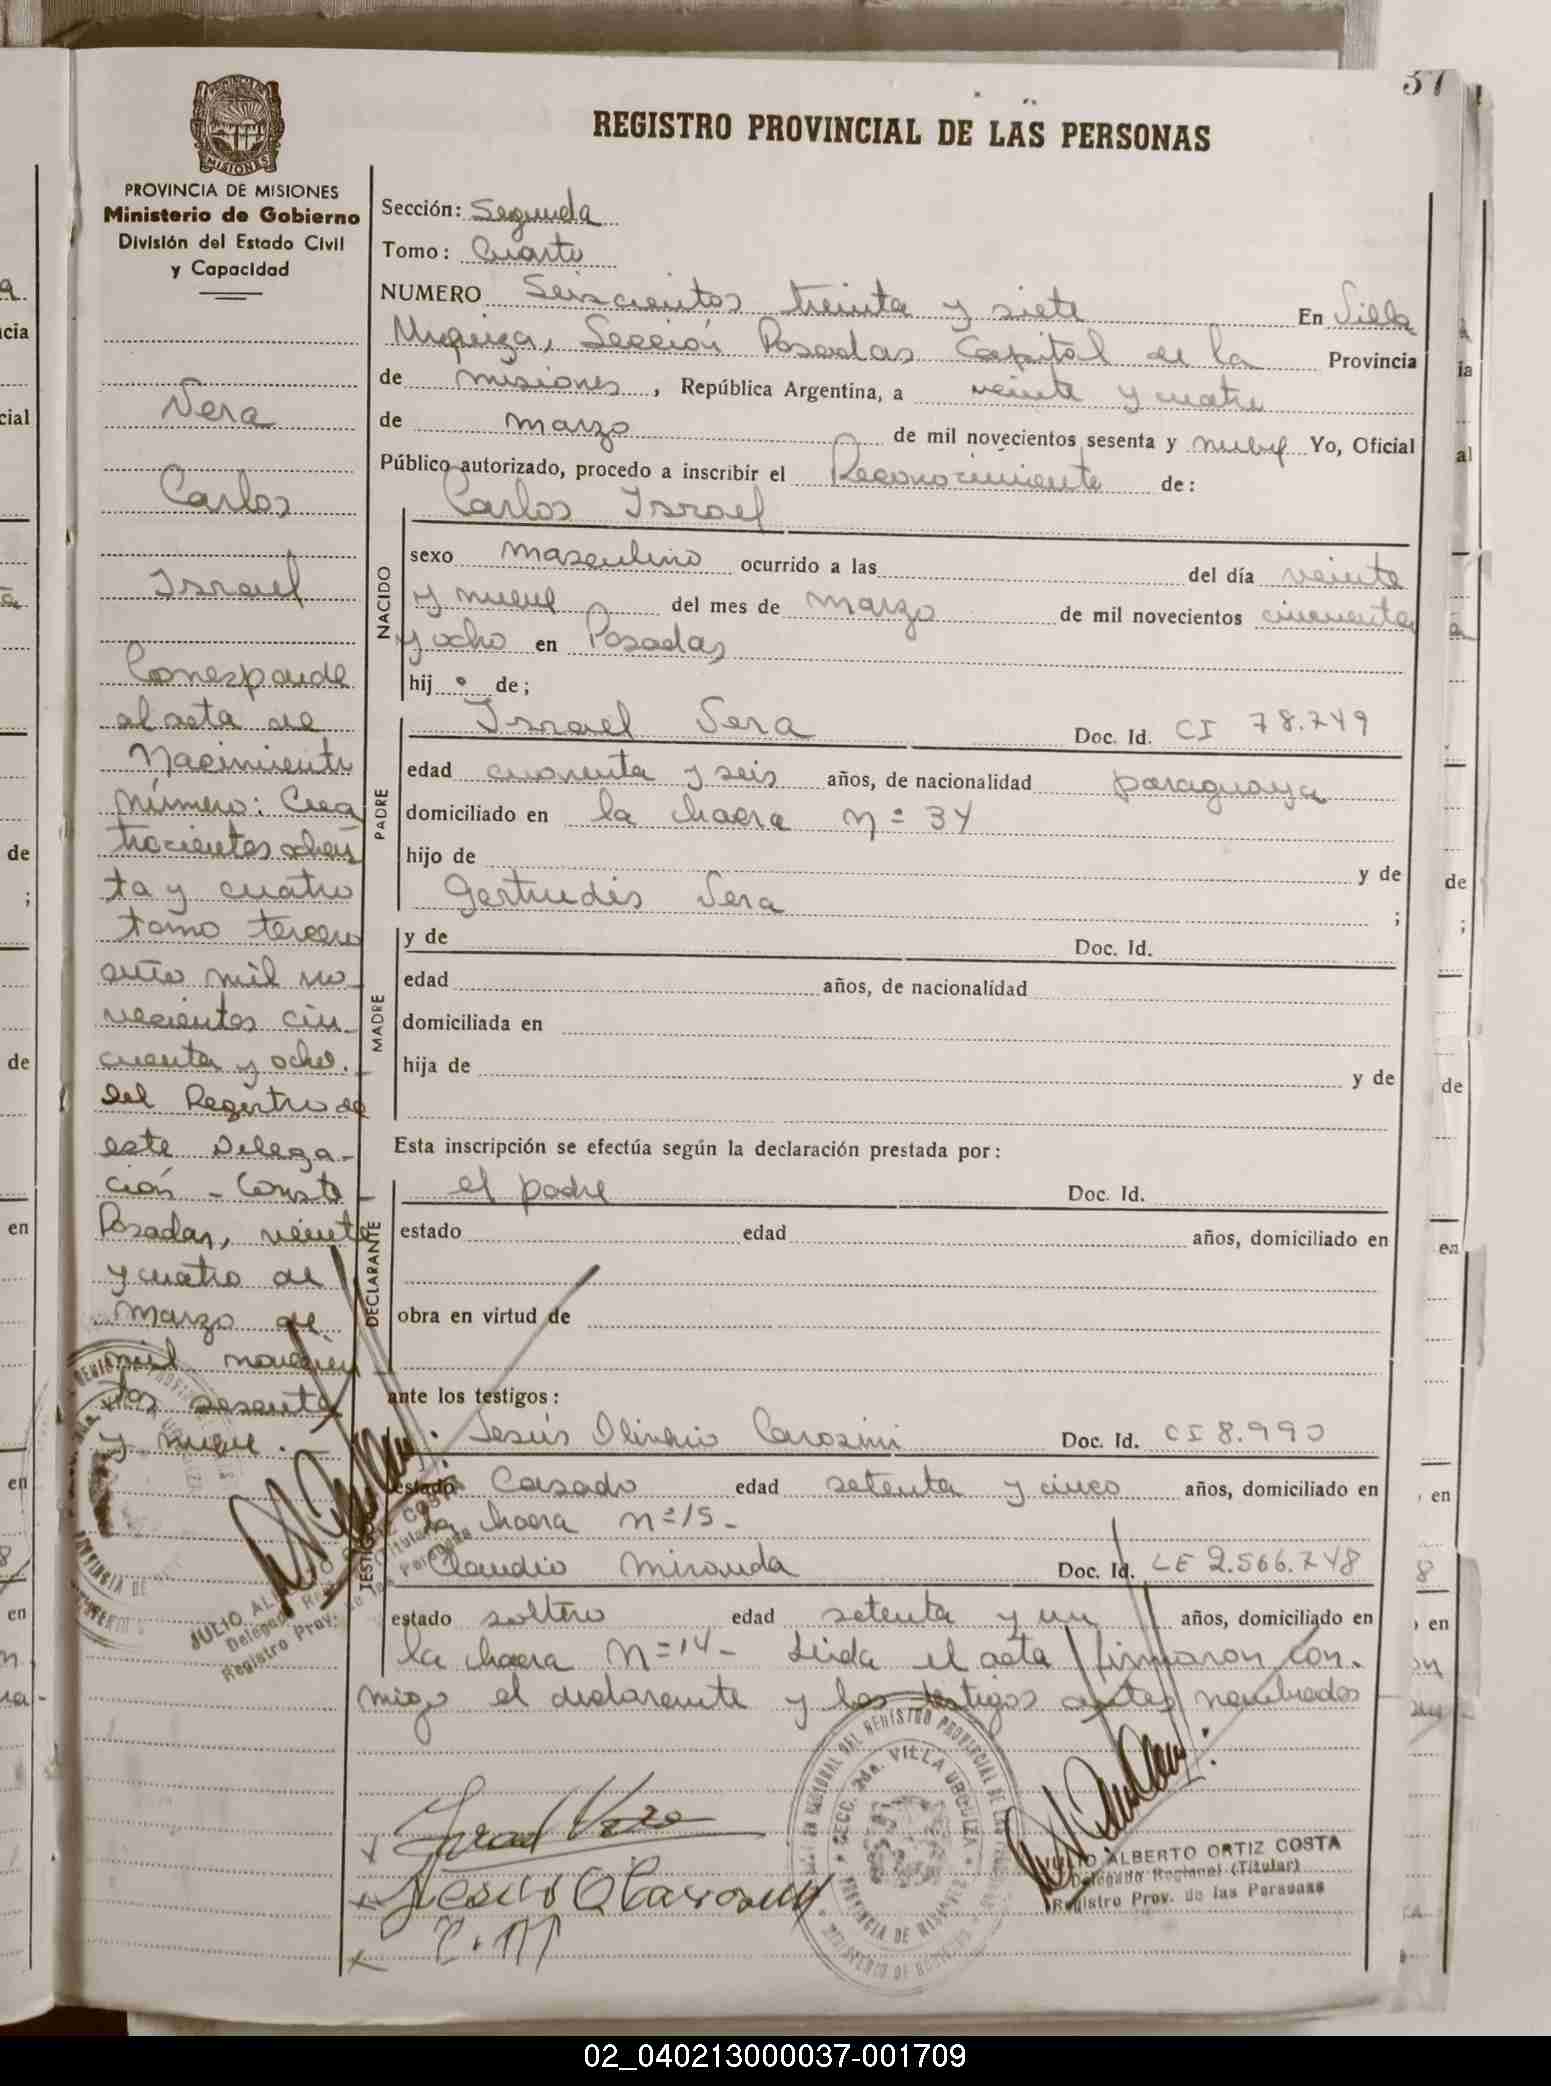 57
REGISTRO PROVINCIAL DE LAS PERSONAS
PROVINCIA DE MISIONES
Ministerio de Gobierno
División del Estado Civil
y Capacidad
Vera
Carlos
Israel
Corresponde
al acta de
Nacimiento
número: Cua
trocientos ochen
ta y cuatro
tomo tercero
año mil no
vecientos cin-
cuenta y ocho.
del Registro de
este Delega-
ción - Conste -
Posadas, veinte
y cuatro de
marzo de
mil novecien
tos sesenta
y nueve.
Sección: Segunda
Tomo: Cuarto
NUMERO Seiscientos treinta y siete En Villa
Urquiza, Sección Posadas Capital de la Provincia
de misiones, República Argentina, a veinte y cuatro
de marzo de mil novecientos sesenta y nueve Yo, Oficial
Público autorizado, procedo a inscribir el Reconocimiento de:
Carlos Israel
NACIDO
sexo masculino ocurrido a las del día veinte
y nueve del mes de marzo de mil novecientos cincuenta
y ocho en Posadas
hij o de;
PADRE
Israel Vera Doc. Id. CI 78.749
edad cuarenta y seis años, de nacionalidad paraguaya
domiciliado en la chacra nº 34
hijo de y de
Gertrudis Vera ;
MADRE
y de Doc. Id.
edad años, de nacionalidad
domiciliada en
hija de y de
Esta inscripción se efectúa según la declaración prestada por:
DECLARANTE
el padre Doc. Id.
estado edad años, domiciliado en
obra en virtud de
ante los testigos:
TESTIGOS
Jesús Olinkio Carosini Doc. Id. CI 8.990
estado Casado edad setenta y cinco años, domiciliado en
la chacra nº 15 -
Claudio Miranda Doc. Id. LE 2.566.748
estado soltero edad setenta y un años, domiciliado en
la chacra Nº 14 - Leida el acta firmaron con.
migo el declarante y los testigos antes nombrados
Israel Vera
Jesus O Carosini
C. M
SECC. 2da. VILLA URQUIZA
PROVINCIA DE MISIONES
JULIO ALBERTO ORTIZ COSTA
Delegado Regional (Titular)
Registro Prov. de las Personas
02_040213000037-001709